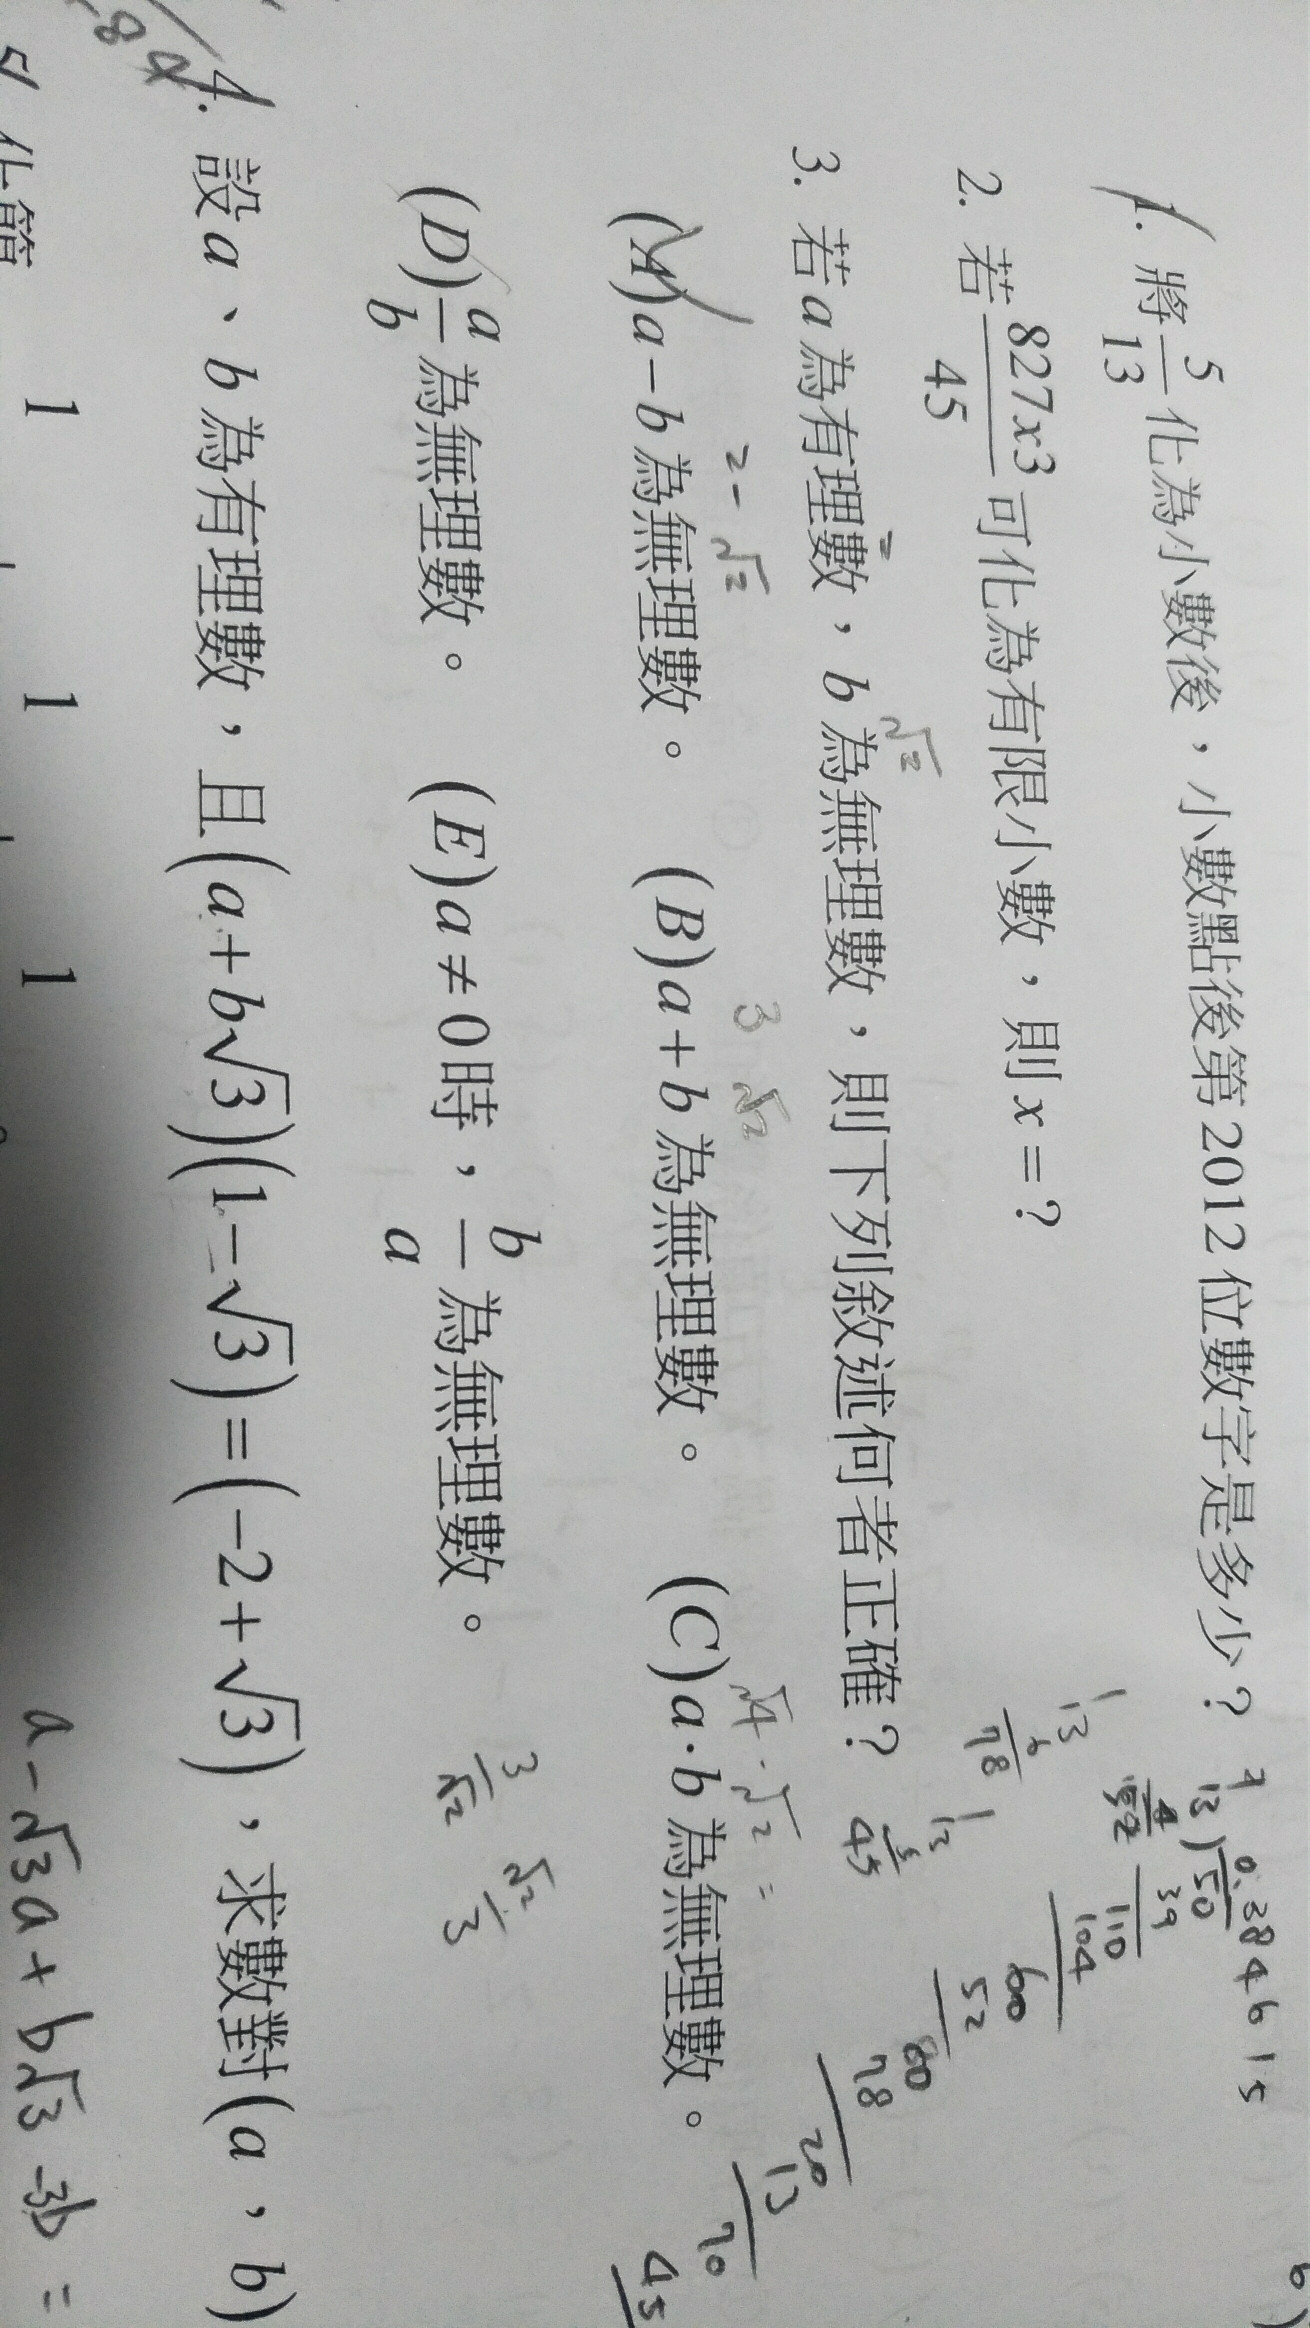 1. 將 5/13 化為小數後，小數點後第2012位數字是多少？
2. 若 827x3/45 可化為有限小數，則x=？
3. 若a為有理數，b為無理數，則下列敘述何者正確？
2
√2
(A)a−b為無理數。 (B)a+b為無理數。 (C)a·b為無理數。
2−√2
3 √2
√4·√2=
(D)a/b為無理數。 (E)a≠0時，b/a為無理數。
3/√2 √2/3
4. 設a、b為有理數，且(a+b√3)(1−√3)=(−2+√3)，求數對(a，b)
a−√3a+b√3−3b=
化簡
1 1 1
0.384615
13)50
39
110
104
60
52
80
78
20
13
70
13
6
78
4
52
45